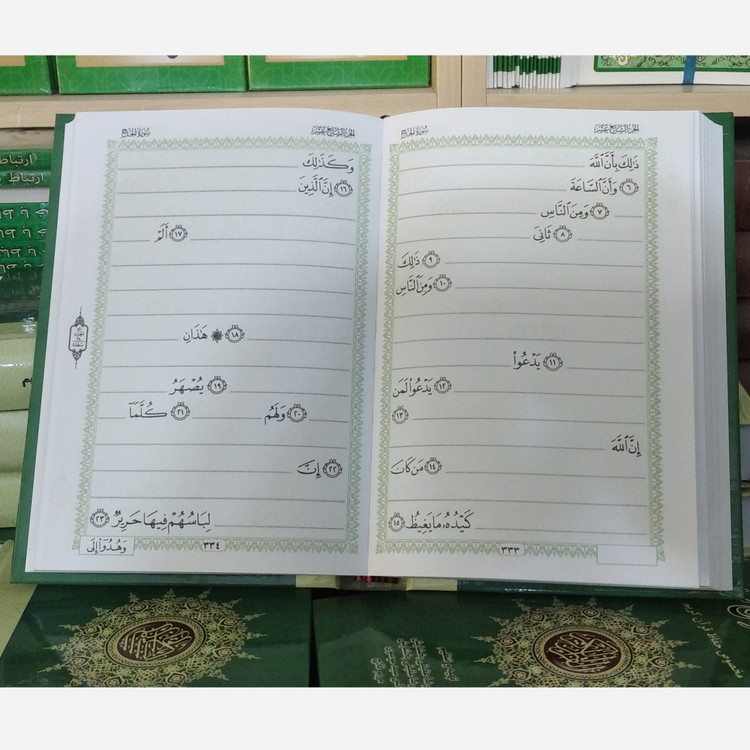 الجزء السابع عشر
سورة الحج
ذَٰلِكَ بِأَنَّ ٱللَّهَ
٦ وَأَنَّ ٱلسَّاعَةَ
٧ وَمِنَ ٱلنَّاسِ
٨ ثَانِيَ
٩ ذَٰلِكَ
١٠ وَمِنَ ٱلنَّاسِ
١١ يَدْعُوا۟
١٢ يَدْعُوا۟ لَمَن
١٣
إِنَّ ٱللَّهَ
١٤ مَن كَانَ
كَيْدُهُۥ مَا يَغِيظُ ١٥
٣٣٣
الجزء السابع عشر
سورة الحج
وَكَذَٰلِكَ
١٦ إِنَّ ٱلَّذِينَ
١٧ أَلَمْ
١٨ ۞ هَٰذَانِ
١٩ يُصْهَرُ
٢٠ وَلَهُم
٢١ كُلَّمَآ
٢٢ إِنَّ
لِبَاسُهُمْ فِيهَا حَرِيرٌ ٢٣
٣٣٤
وَهُدُوٓا۟ إِلَى
ارتباط
ارتباط